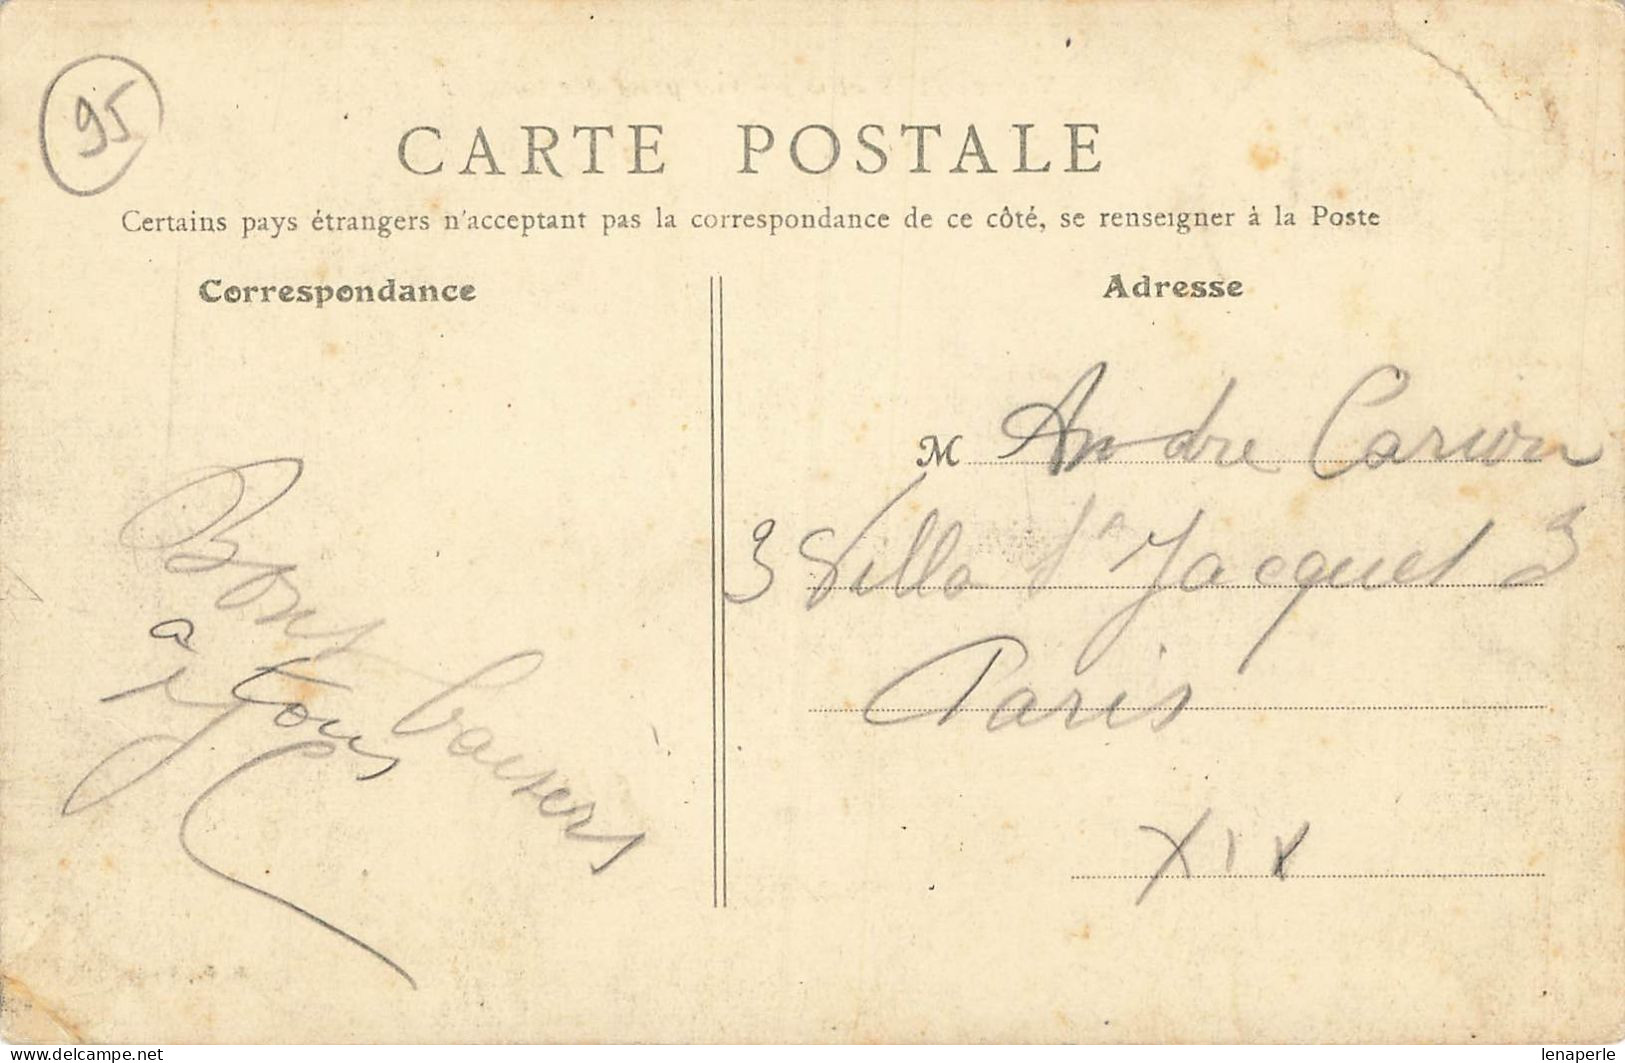 95
CARTE POSTALE
Certains pays étrangers n'acceptant pas la correspondance de ce côté, se renseigner à la Poste
Correspondance
Adresse
Bons baisers
a tous
M Andre
3 Villa St Jacques 3
Paris
XIX
www.delcampe.net
lenaperle